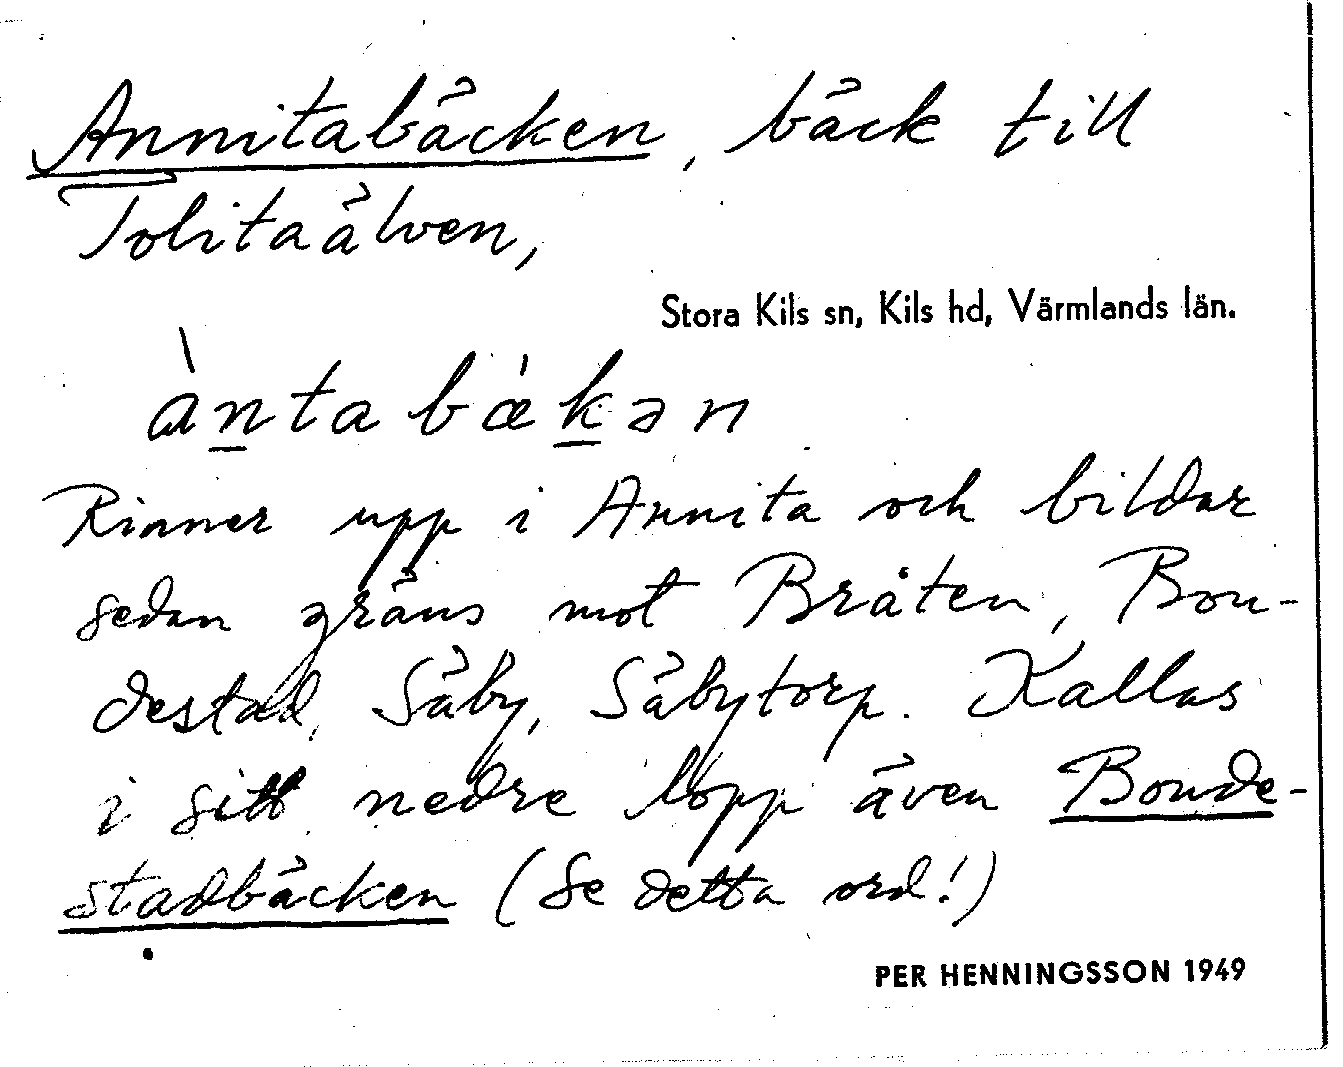 Annitabäcken, bäck till
Tolitaälven,
Stora Kils sn, Kils hd, Värmlands län.
àntabæ̀kən
Rinner upp i Annita och bildar
sedan gräns mot Bråten, Bon-
destad, Säby, Säbytorp. Kallas
i sitt nedre lopp även Bonde-
stadbäcken (Se detta ord!)
PER HENNINGSSON 1949